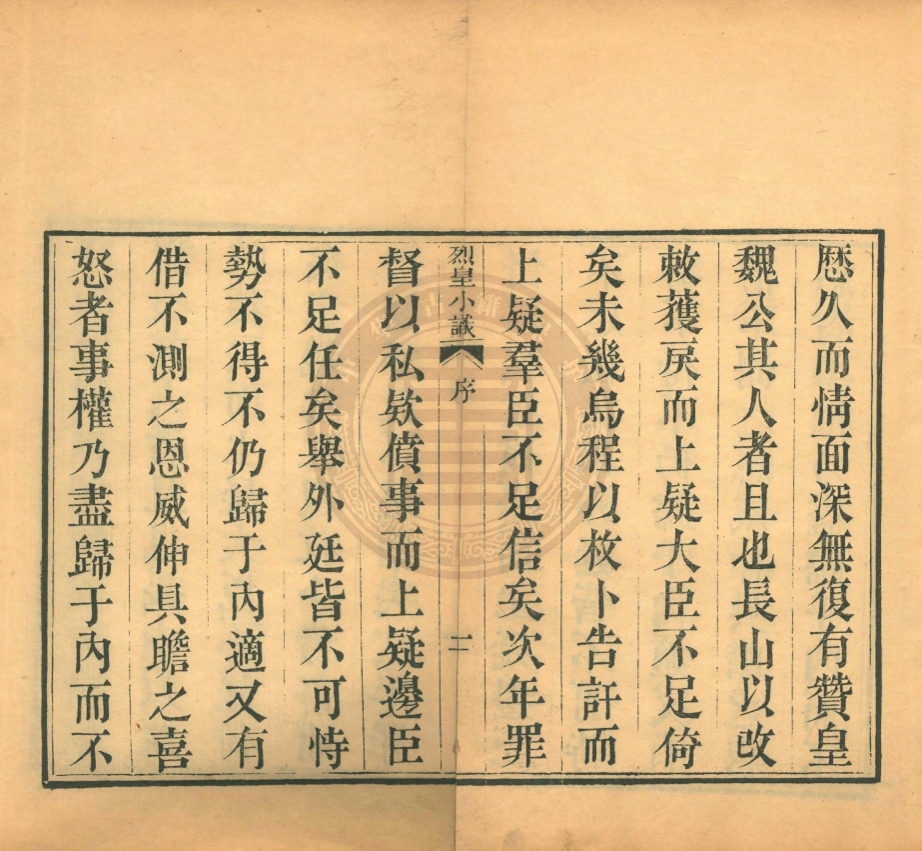 歷久而情面深無復有贊皇
魏公其人者且也長山以改
敕獲戾而上疑大臣不足倚
矣未幾烏程以枚卜告訐而
上疑羣臣不足信矣次年罪
烈皇小識 序 二
督以私欵僨事而上疑邊臣
不足任矣舉外廷皆不可恃
勢不得不仍歸于內適又有
借不測之恩威伸具瞻之喜
怒者事權乃盡歸于內而不